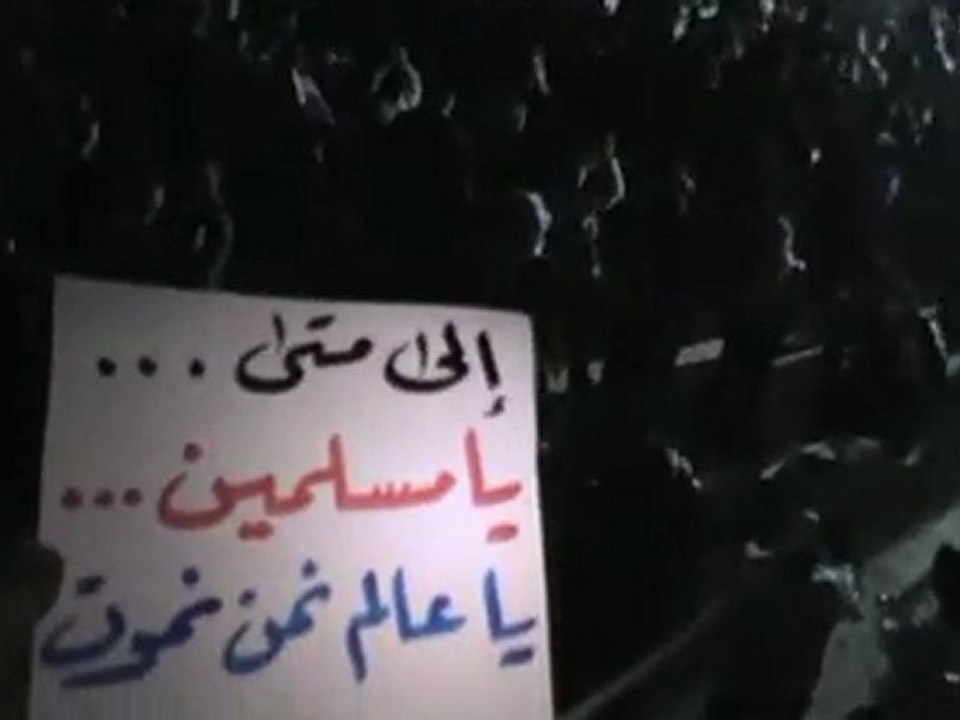 إلى متى ...
يا مسلمين ...
يا عالم نحن نموت